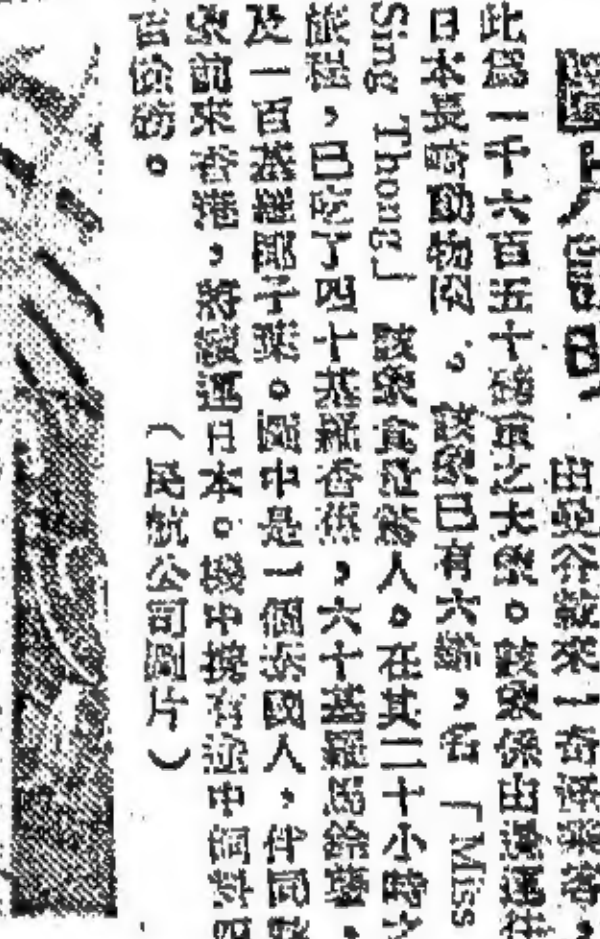 圖片說明
由曼谷載來一奇怪乘客，
此為一千六百五十磅重之大象。該象係由港運往
日本長崎動物園。該象已有六歲，名「Miss
Sing Thong」該象食量驚人。在其二十小時之
旅程，已吃了四十基羅香蕉，六十基羅馬鈴薯，
及一百基羅椰子葉。圖中是一個泰國人，伴同該
象前來香港，將續運日本。機中接有途中飼料四
（民航公司圖片）